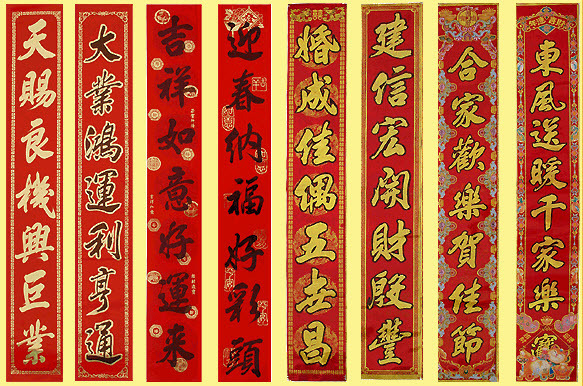 東風送暖千家樂
合家歡樂賀佳節
建信宏開財殷豐
婚成佳偶五世昌
迎春納福好彩頭
吉祥如意好運来
大業鴻運利亨通
天賜良機興巨業